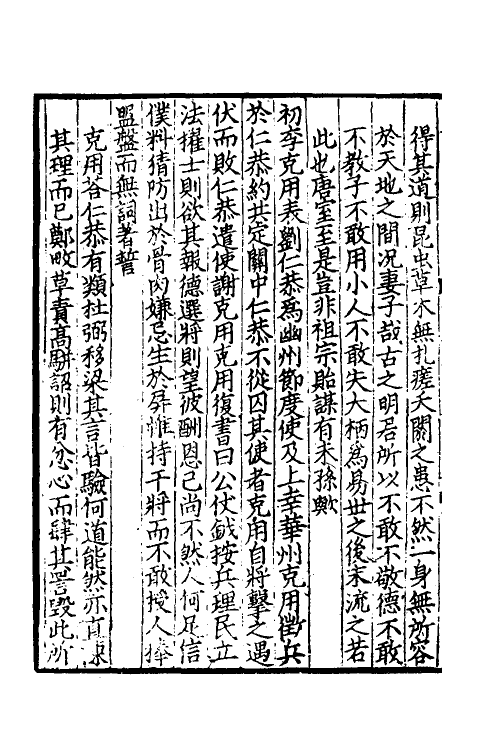 得其道則昆虫草木無扎瘥夭閼之患不然一身無所容
於天地之間況妻子哉古之明君所以不敢不敬德不敢
不教子不敢用小人不敢失大柄爲易世之後末流之若
此也唐室至是豈非祖宗貽謀有未孫歟
初李克用表劉仁恭爲幽州節度使及上幸華州克用徵兵
於仁恭約共定關中仁恭不從囚其使者克用自將擊之遇
伏而敗仁恭遣使謝克用克用復書曰公仗鉞按兵理民立
法擢士則欲其報德選將則望彼酬恩已尚不然人何足信
僕料猜防出於骨肉嫌忌生於屏帷持干將而不敢授人捧
盟盤而無詞著誓
克用荅仁恭有類杜弼移梁其言皆驗何道能然亦直求
其理而已鄭畋草責高駢詔則有忿心而肆其詈毀此所